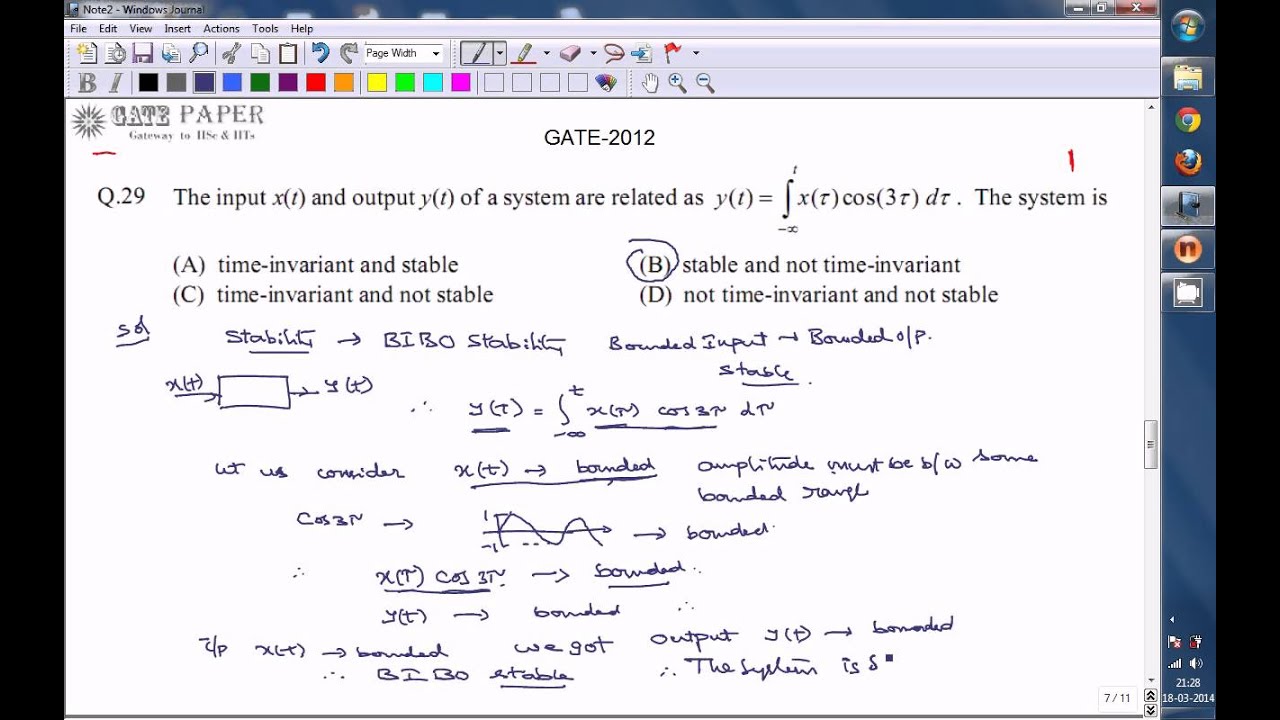 Note2 - Windows Journal
File Edit View Insert Actions Tools Help
Page Width
B I
GATE PAPER
Gateway to IISc & IITs
GATE-2012
1
Q.29 The input x(t) and output y(t) of a system are related as y(t) = ∫_{-∞}^{t} x(τ) cos(3τ) dτ . The system is
(A) time-invariant and stable (B) stable and not time-invariant
(C) time-invariant and not stable (D) not time-invariant and not stable
Sol
Stability → BIBO Stability Bounded Input → Bounded o/p.
stable
x(t) → y(t)
∴ y(t) = ∫_{-∞}^{t} x(τ) cos3τ dτ
let us consider x(t) → bounded amplitude must be b/w some
bounded range
cos3τ → 1 -1 → bounded.
∴ x(τ) cos3τ → bounded.
y(t) → bounded ∴
i/p x(t) → bounded we got output y(t) → bounded
∴ BIBO stable ∴ The system is s
7 / 11
21:28
18-03-2014